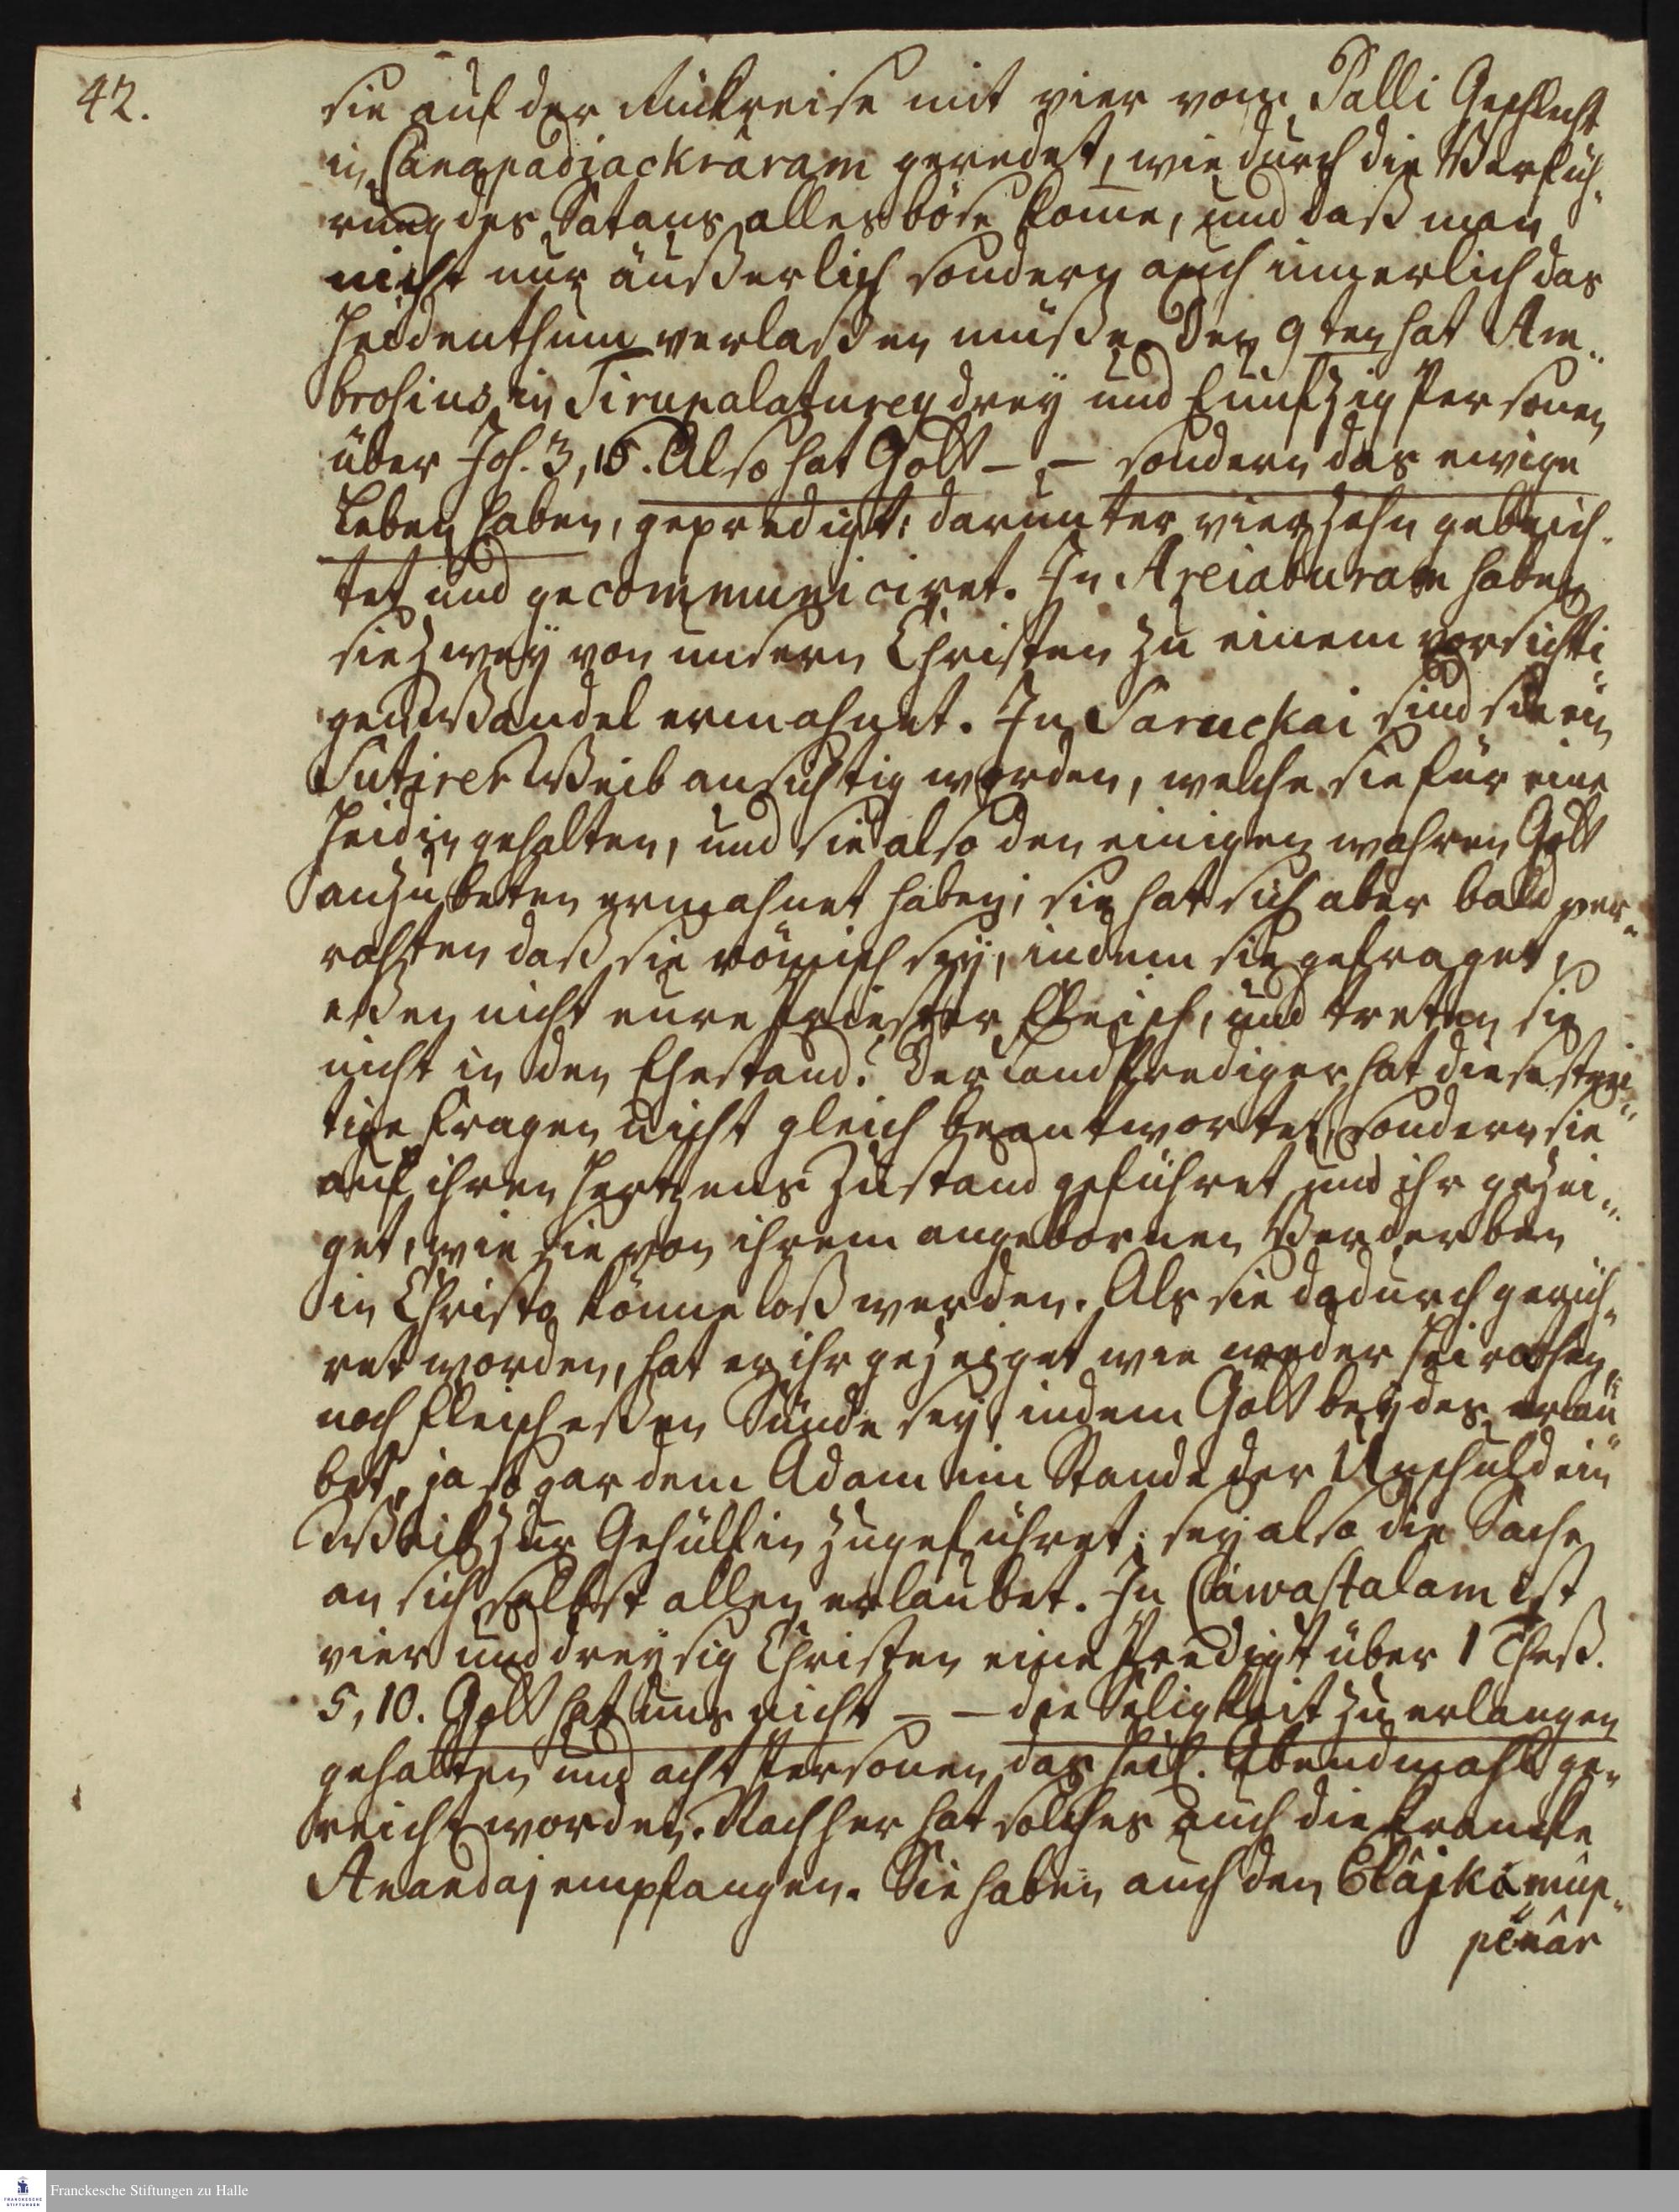 42.
sie auf der Rückreise mit vier vom Palli Geschlecht
in Canapadiackraram geredet, wie durch die Verfüh¬
rung des Satans alles böse kom̄e, und daß man
nicht nur äußerlich sondern auch innerlich das
Heidenthum verlaßen müße. Den 9ten hat Am¬
brosius in Tirupalaturey drey und funfzig Personen
über Joh. 3, 16. Also hat Gott – – sondern das ewige
Leben haben, geprediget: darunter vierzehn gebeich¬
tet und gecommuniciret. In Areiaburam haben
sie zwey von unsern Christen zu einem vorsichti¬
gen Wandel ermahnet. In Saruckai sind sie ein
Sutirer Weib ansichtig worden, welche sie für eine
Heidin gehalten, und sie also den einigen wahren Gott
anzubeten ermahnet haben; sie hat sich aber bald ver¬
rathen daß sie römisch sey, indem sie gefraget,
eßen nicht eure Priester Fleisch, und treten sie
nicht in den Ehestand? Der Landprediger hat diese strei¬
tige Fragen nicht gleich beantwortet, sondern sie
auf ihren Hertzens Zustand geführet und ihr gezei¬
get, wie sie von ihrem angebornen Verderben
in Christo könne loß werden. Als sie dadurch gerüh¬
ret worden, hat er ihr gezeiget wie weder heirathen
noch Fleisch eßen Sünde sey, indem Gott beydes erlau¬
bet, ja so gar dem Adam im Stande der Unschuld ein
Weib zur Gehülfin zugeführet; sey also die Sache
an sich selbst allen erlaubet. In Cawastalam ist
vier und dreysig Christen eine Predigt über 1 Theß.
5, 10. Gott hat uns nicht – – die Seligkeit zu erlangen
gehalten und acht Personen das heil. Abendmahl ge¬
reicht worden. Nachher hat solches auch die krancke
Anandaj empfangen. Sie haben auch den
penâr
Franckesche Stiftungen zu Halle